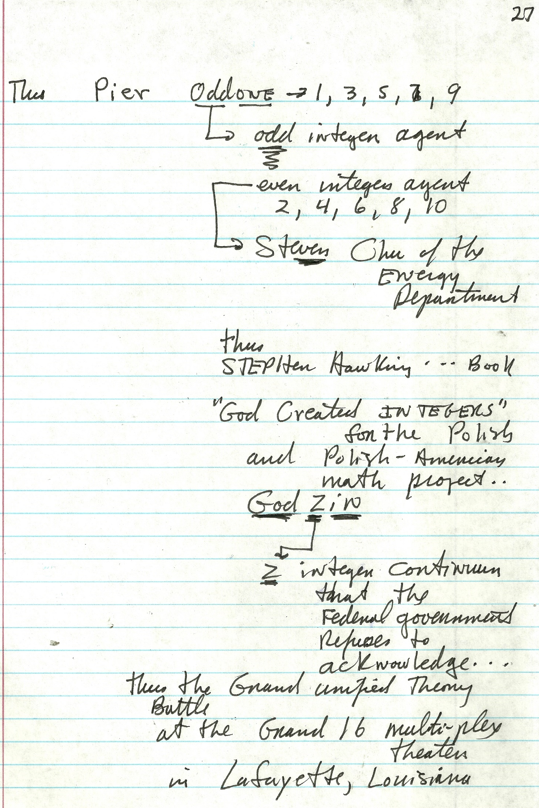 27
Thus Pier Oddone → 1, 3, 5, 7, 9
odd integer agent
even integer agent
2, 4, 6, 8, 10
Steven Chu of the
Energy
Department
thus
STEPHen Hawking ... Book
"God Created INTEGERS"
for the Polish
and Polish-American
math project..
God Zin
Z integer continuum
that the
Federal government
Refuses to
acknowledge...
thus the Grand unified Theory
Battle
at the Grand 16 multi-plex
theater
in Lafayette, Louisiana